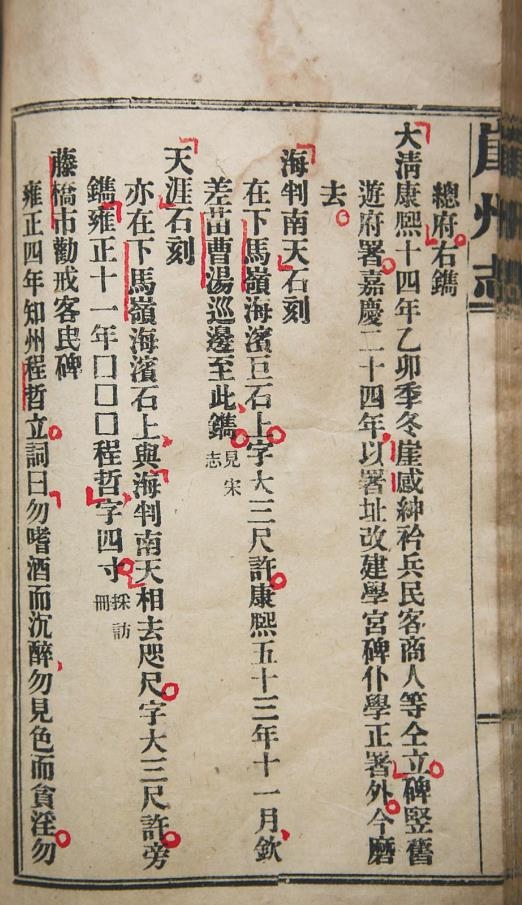 崖州志
總府右鐫
大清康熙十四年乙卯季冬崖感紳衿兵民客商人等仝立碑豎舊
遊府署嘉慶二十四年以署址改建學宮碑仆學正署外今磨
去
海判南天石刻
在下馬嶺海濱巨石上字大三尺許康熙五十三年十一月欽
差苗曹湯巡邊至此鐫見宋志
天涯石刻
亦在下馬嶺海濱石上與海判南天相去咫尺字大三尺許旁
鐫雍正十一年□□□程哲字四寸採訪冊
藤橋市勸戒客民碑
雍正四年知州程哲立詞曰勿嗜酒而沉醉勿見色而貪淫勿